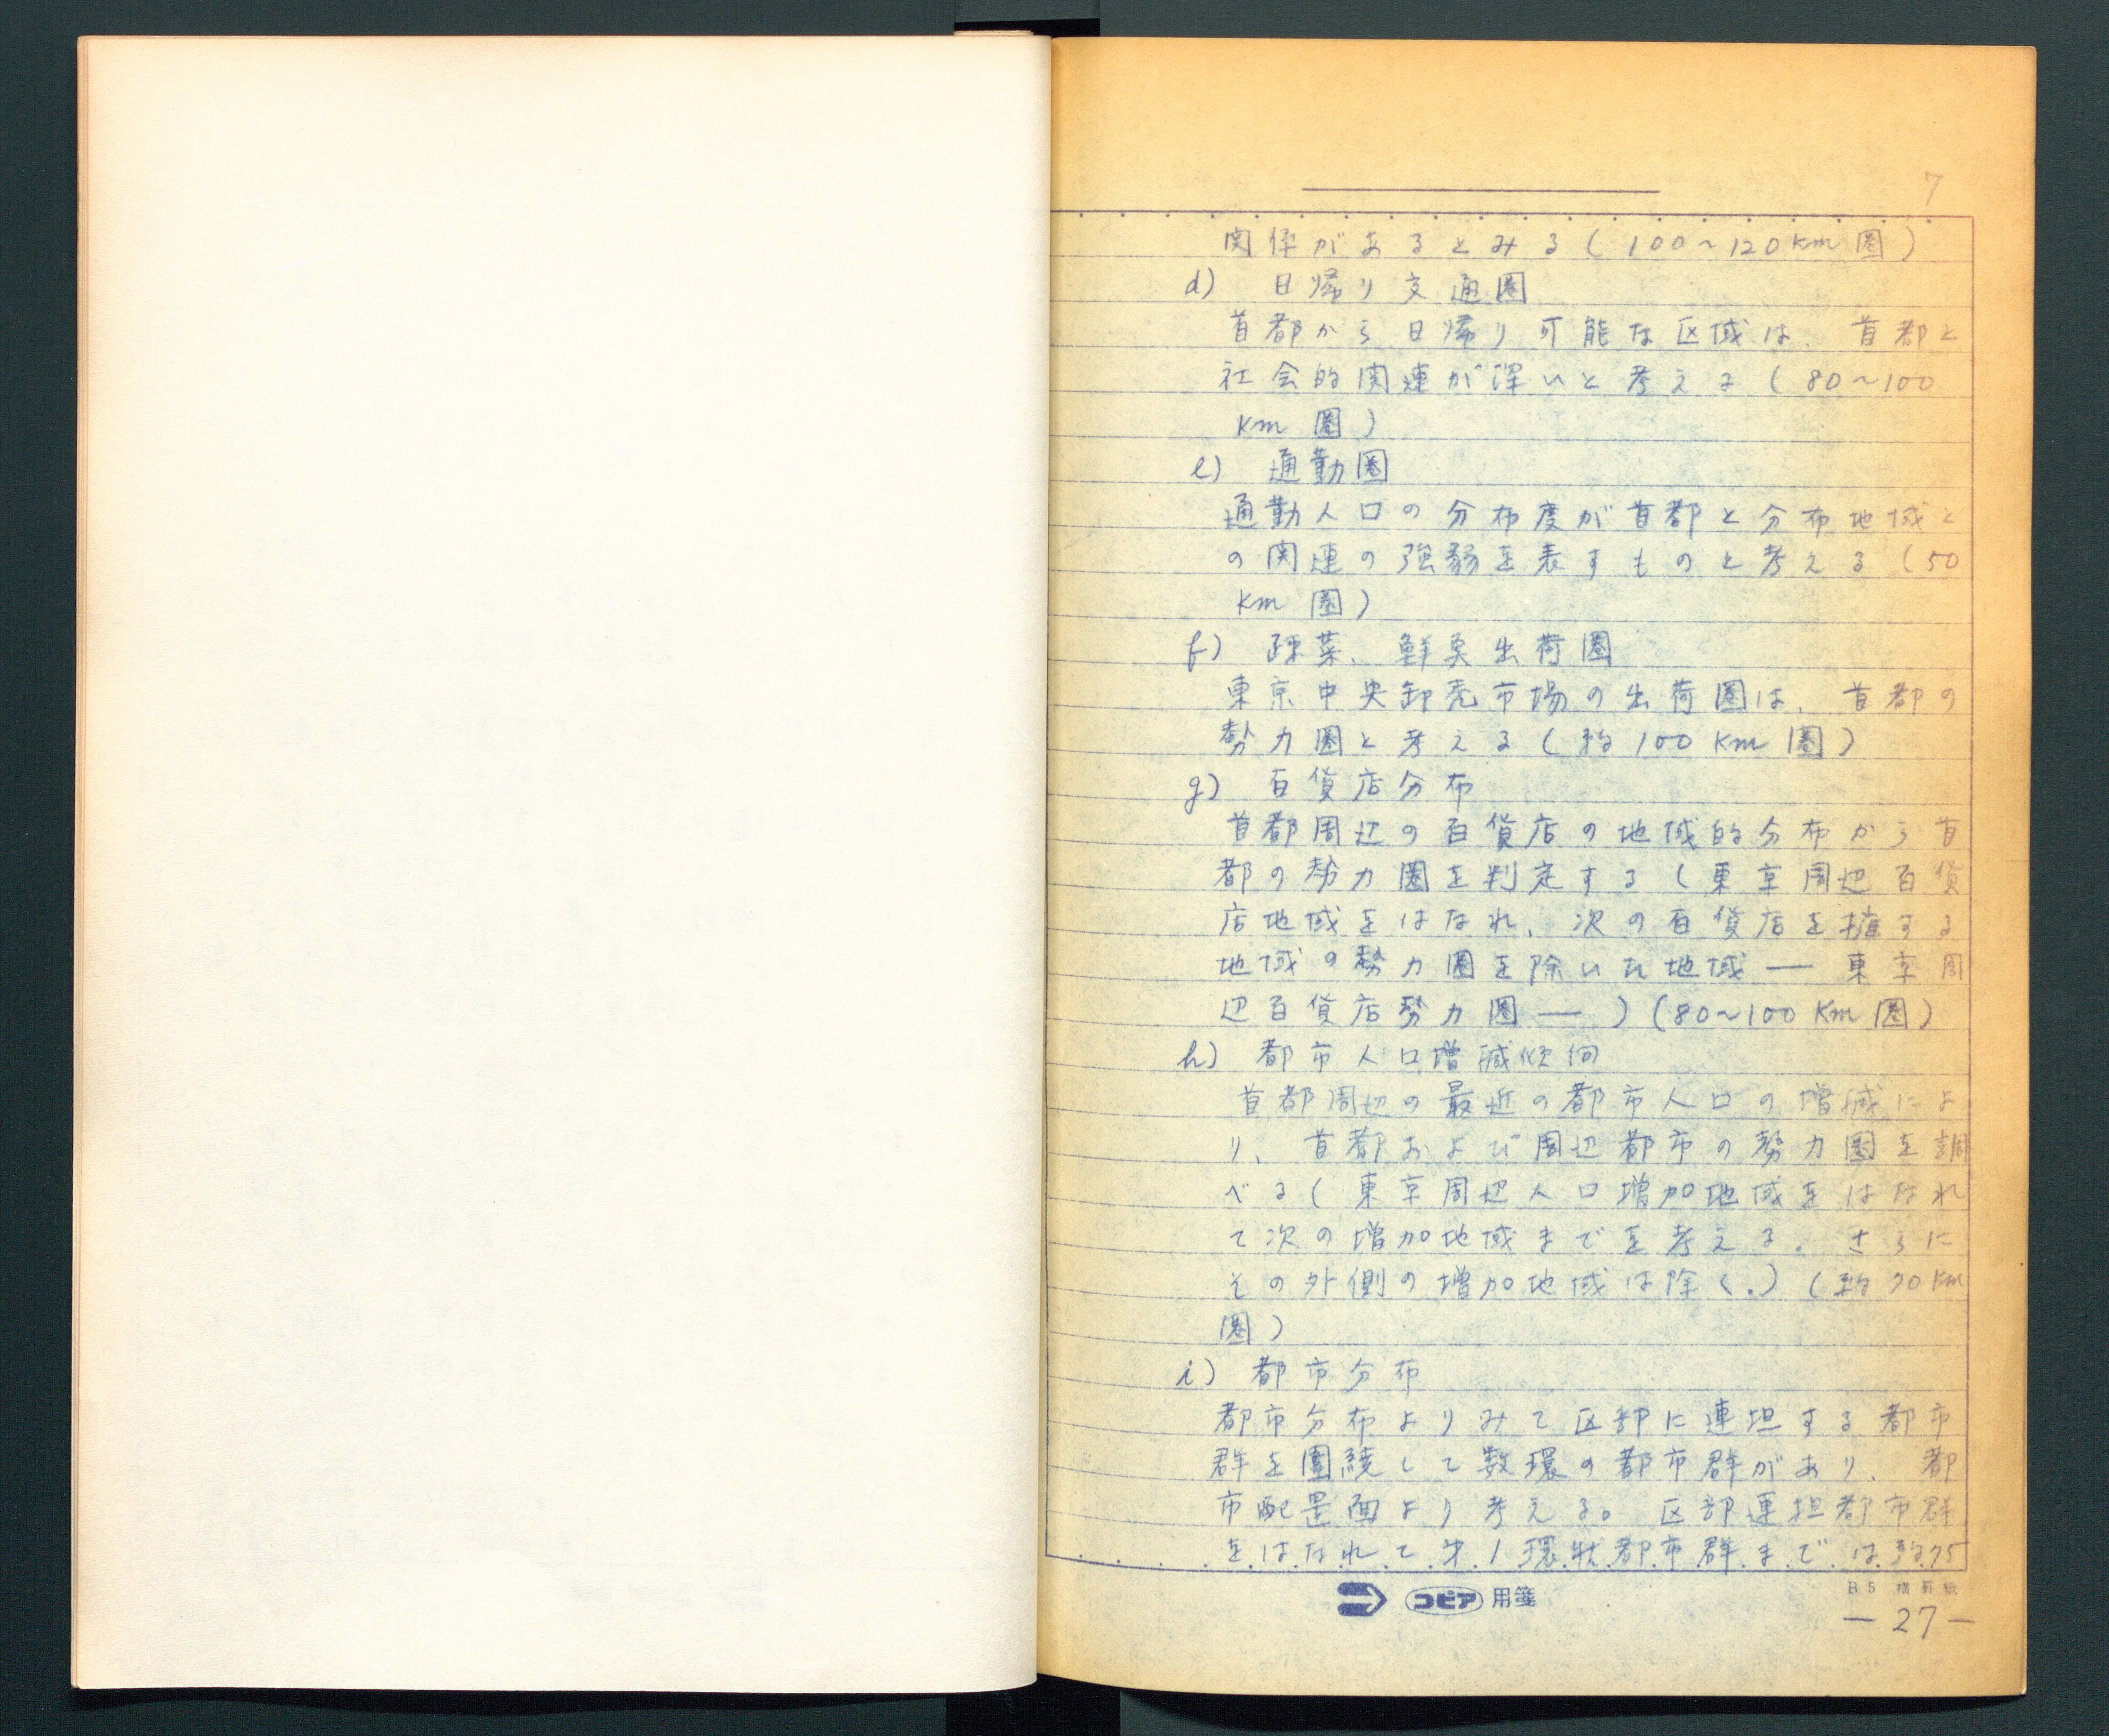 7
関係があるとみる(100~120km圏)
d) 日帰り交通圏
首都から日帰り可能な区域は、首都と
社会的関連が深いと考える(80~100
km圏)
e) 通勤圏
通勤人口の分布度が首都と分布地域と
の関連の強弱を表すものと考える(50
km圏)
f) 疎菜、鮮魚出荷圏
東京中央卸売市場の出荷圏は、首都の
勢力圏と考える(約100km圏)
g) 百貨店分布
首都周辺の百貨店の地域的分布から首
都の勢力圏を判定する(東京周辺百貨
店地域をはなれ、次の百貨店を擁する
地域の勢力圏を除いた地域―東京周
辺百貨店勢力圏―)(80~100km圏)
h) 都市人口増減傾向
首都周辺の最近の都市人口の増減によ
り、首都および周辺都市の勢力圏を調
べる(東京周辺人口増加地域をはなれ
て次の増加地域までを考える。さらに
その外側の増加地域は除く.)(約70km
圏)
i) 都市分布
都市分布よりみて区部に連坦する都市
群を囲繞して数環の都市群があり、都
市配置面より考える。区部連担都市群
をはなれて才1環状都市群までは約75
コピア用箋
B5 横罫紙
—27—